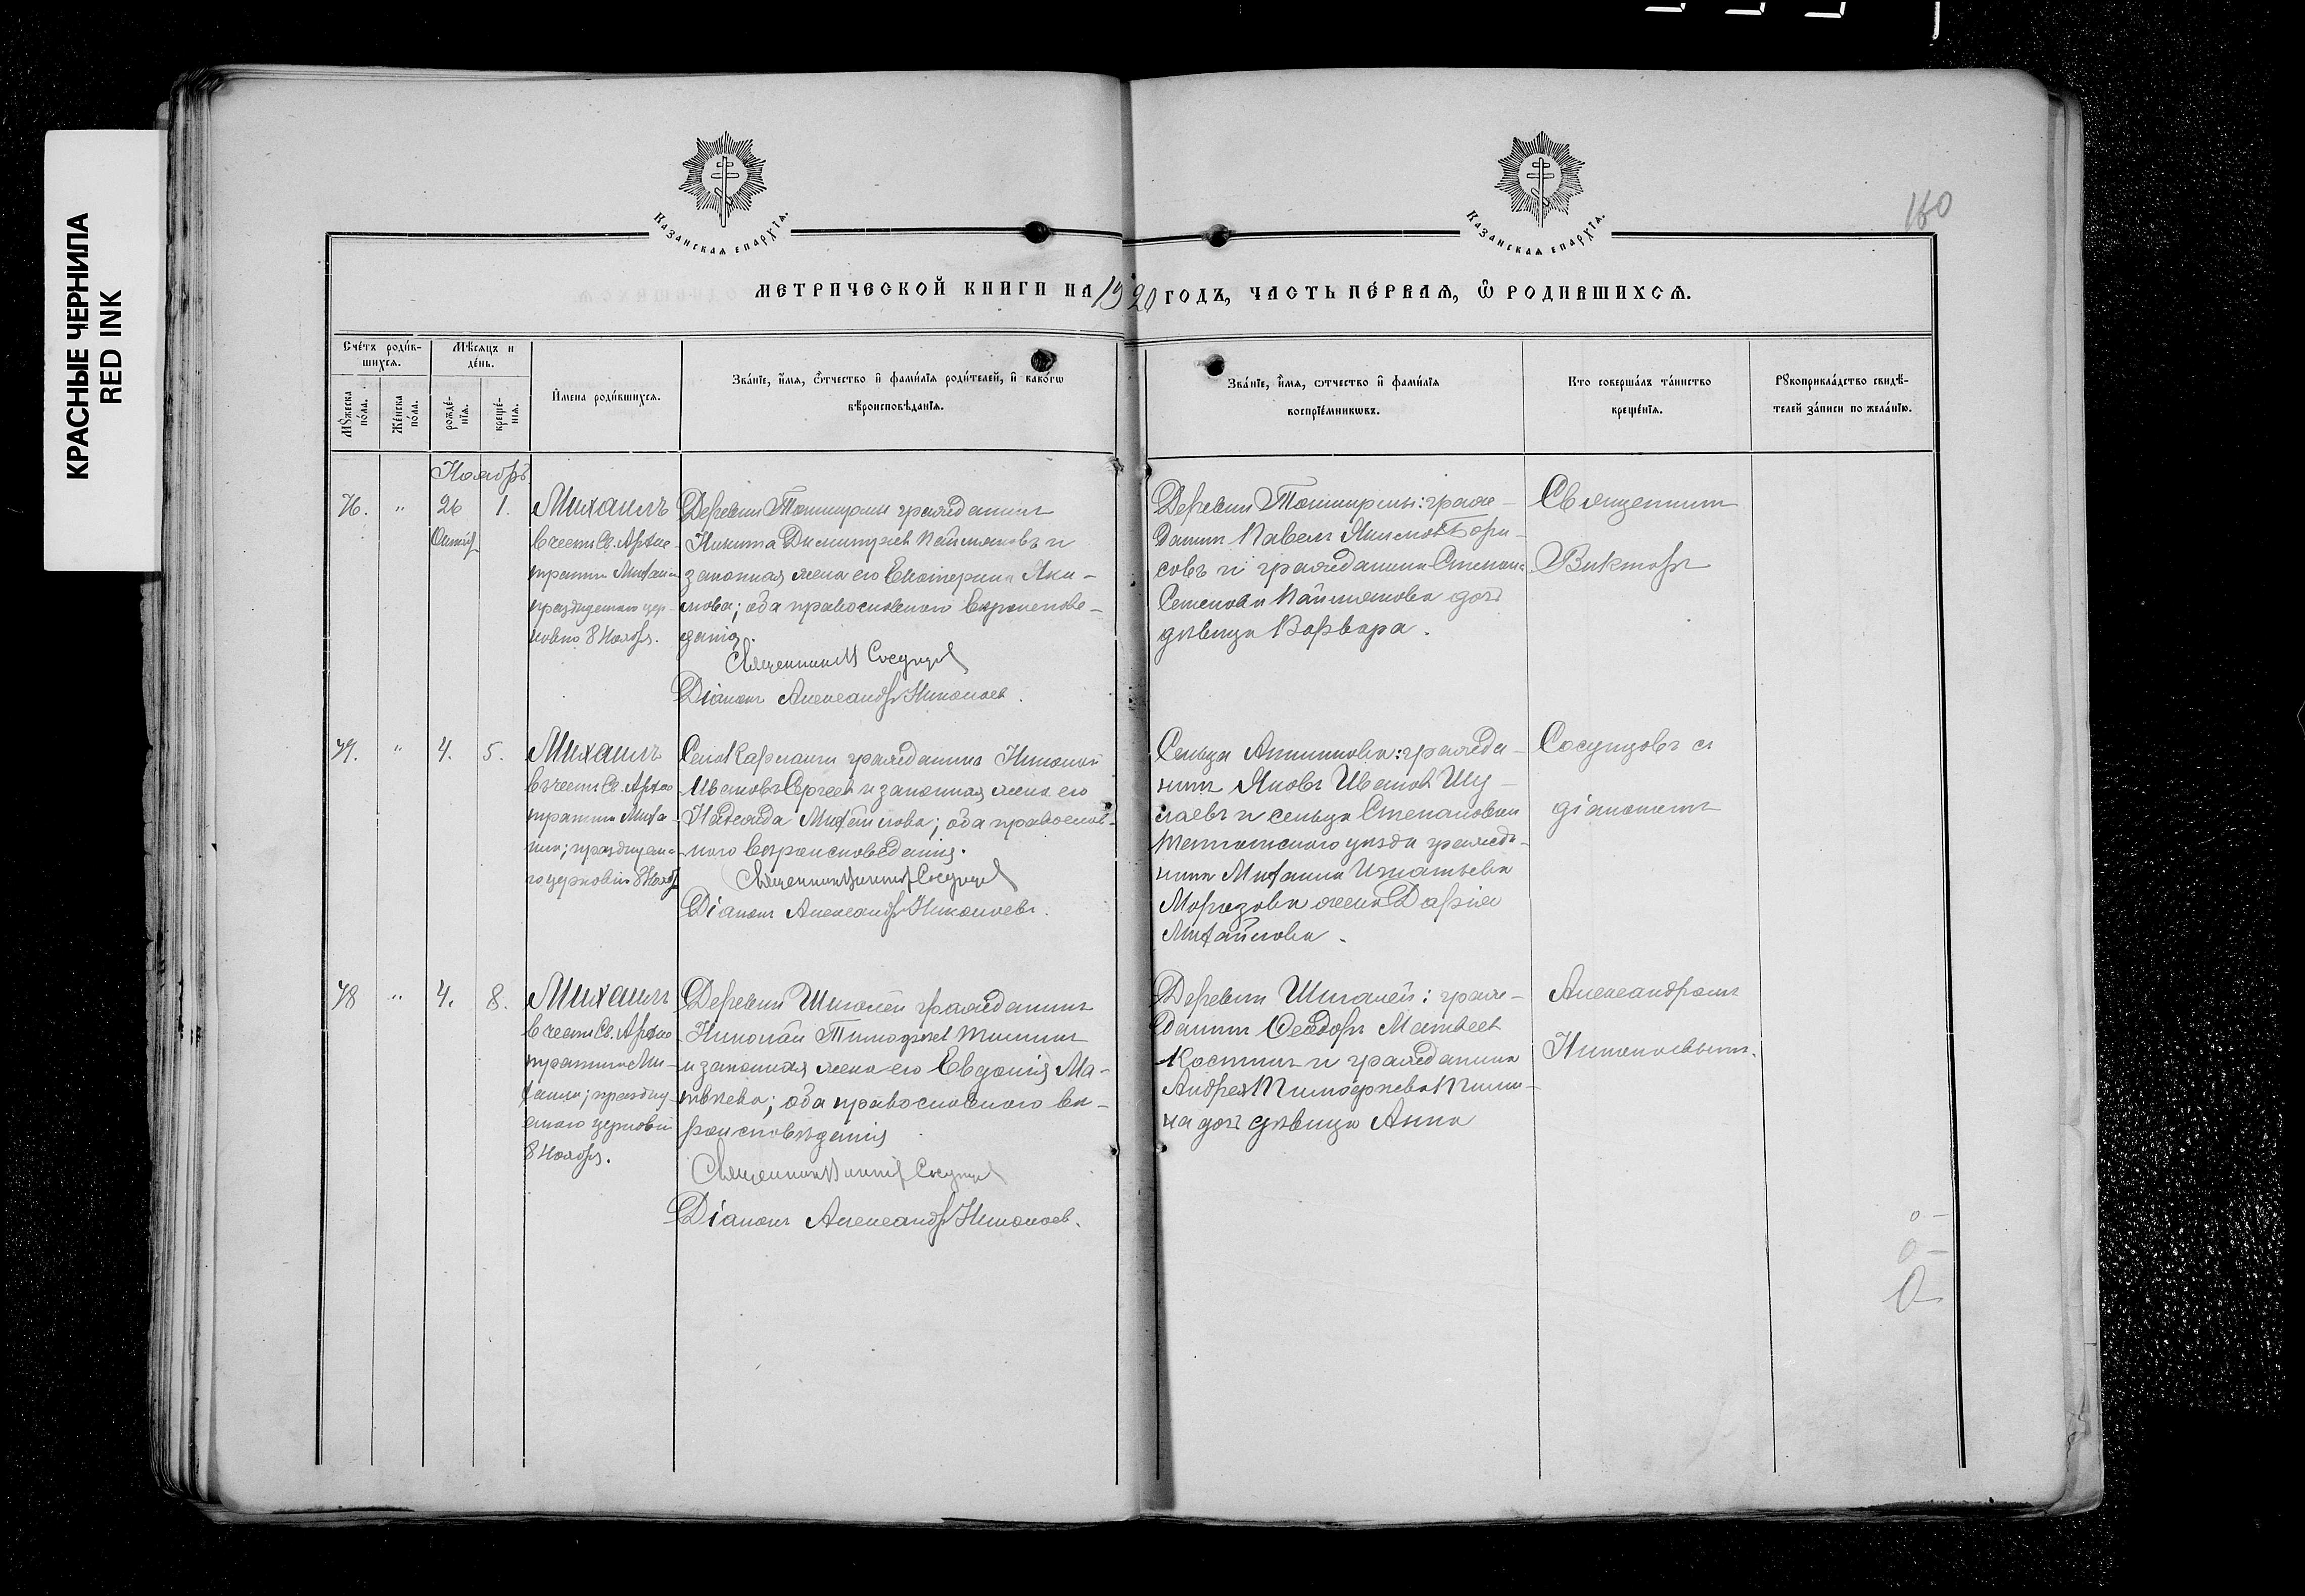 КРАСНЫЕ ЧЕРНИЛА
RED INK
160
Казанская епархїѧ.
Казанская епархїѧ.
МЕТРИЧЕСКОЙ КНИГИ НА 1920 ГОДЪ, ЧАСТЬ ПЕ́РВАѦ, Ѽ РОДИВШИХСѦ.
Сче́тъ роди́в-
шихсѧ.
Мѣсѧцъ и
де́нь.
Мꙋ́жеска
по́ла.
Же́нска
по́ла.
рожде́-
нїѧ.
креще́-
нїѧ.
И҆мена роди́вшихсѧ.
Зва́нїе, и҆́мѧ, ѻ҆́тчество и҆ фами́лїѧ роди́телей, и҆ како́гѡ
вѣроисповѣ́данїѧ.
Зва́нїе, и҆́мѧ, ѻ҆́тчество и҆ фами́лїѧ
воспрїе́мникѡвъ.
Кто соверша́лъ та́инство
креще́нїѧ.
Рꙋкоприкла́дство свидѣ́-
телей за́писи по жела́нїю.
Ноябрь
26 1. Михаилъ
въ честь Св. Архи-
стратига Михаила
празднуемаго цер-
ковію 8 Ноября.
гражданинъ
Никита Димитріев и
законная жена его Екатерина Яки-
мова; оба православнаго вѣроисповѣ-
данія.
Священникъ Сосунцов
Діаконъ Александръ Николаев.
Деревни : граж-
данинъ Павелъ Бори-
совъ и гражданина Степана
Семенова дочь
дѣвица Варвара.
Священникъ
Викторъ
" 4. 5. Михаилъ
въ честь Св. Архи-
стратига Миха-
ила; празднуема-
го церковію 8 Ноябр
Села гражданинъ Николай
Ивановъ Сергеев и законная жена его
Надежда Михайлова; оба православ-
наго вѣроисповѣданія.
Священникъ Виктор Сосунцов
Діаконъ Александръ Николаевъ.
Сельца : гражда-
нинъ Яковъ Иванов Шу-
лаевъ и сельца Степановки
уѣзда гражда-
нина Михаила Игнатьева
Морозова жена Дарія
Михайлова.
Сосунцовъ съ
діакономъ
78 " 4. 8. Михаилъ
въ честь Св. Архи-
стратига Ми-
хаила; праздну-
емаго церковію
8 Ноября.
Деревни Шигалей гражданинъ
Николай Тимофеев Тишинъ
и законная жена его Евдокія Ма-
твѣева; оба православнаго вѣ-
роисповѣданія
Священникъ Виктор Сосунцов
Діаконъ Александръ Николаев.
Деревни Шигалей: граж-
данинъ Ѳеодоръ Матвеев
Костинъ и гражданина
Андрея Тимофеева Тиши-
на дочь дѣвица Анна
Александромъ
Николаевымъ.